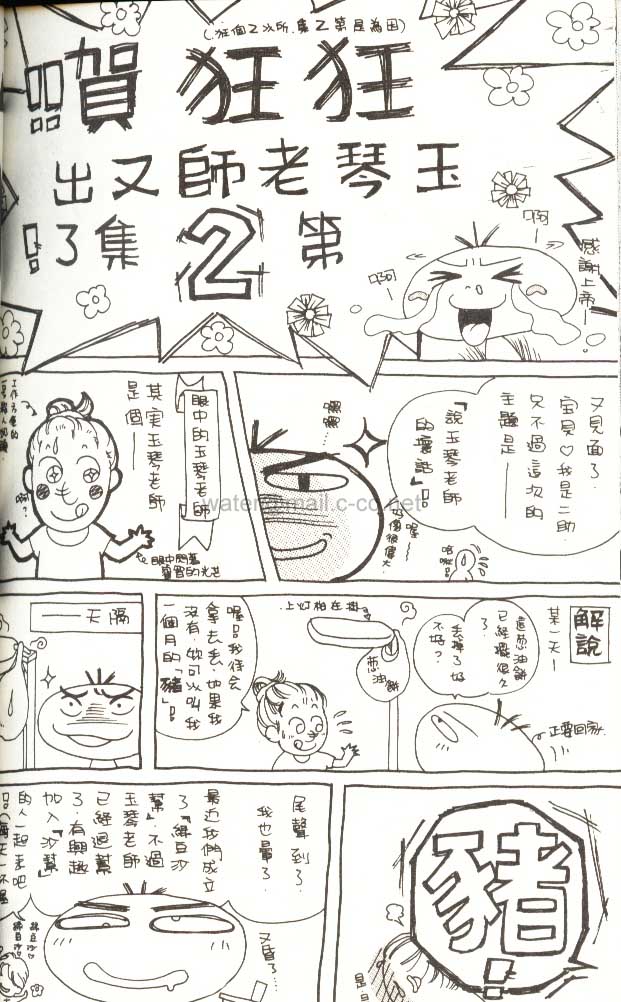 (因為是第2集.所以2個狂.)
狂狂賀!!
玉琴老師又出
第2集了!!
感謝上帝—
啊—
啊—
又見面了.
寶貝♡我是二助.
只不過這次的
主題是——
「說玉琴老師
的壞話」!!
嘿嘿…
喔~
好像很偉大.
眼中的玉琴老師
其實玉琴老師
是個——
啊?
眼中閃著
智慧的光芒
解說
某一天—
這葱油餅
已經擺很久
了.
丟掉了好
不好?
正要回家.
掛在柏灯上.
葱油餅
喔!!我待會
拿去丟.如果我
沒有.妳可以叫我
一個月的「豬」!!
隔天——
豬!
尾聲到了.
我也暈了.
最近我們成立
了「綠豆沙
幫」.不過
玉琴老師
已經過幫
了.有興趣
加入「沙幫」
的人一起來吧
又昏了…
綠豆沙
綠豆沙